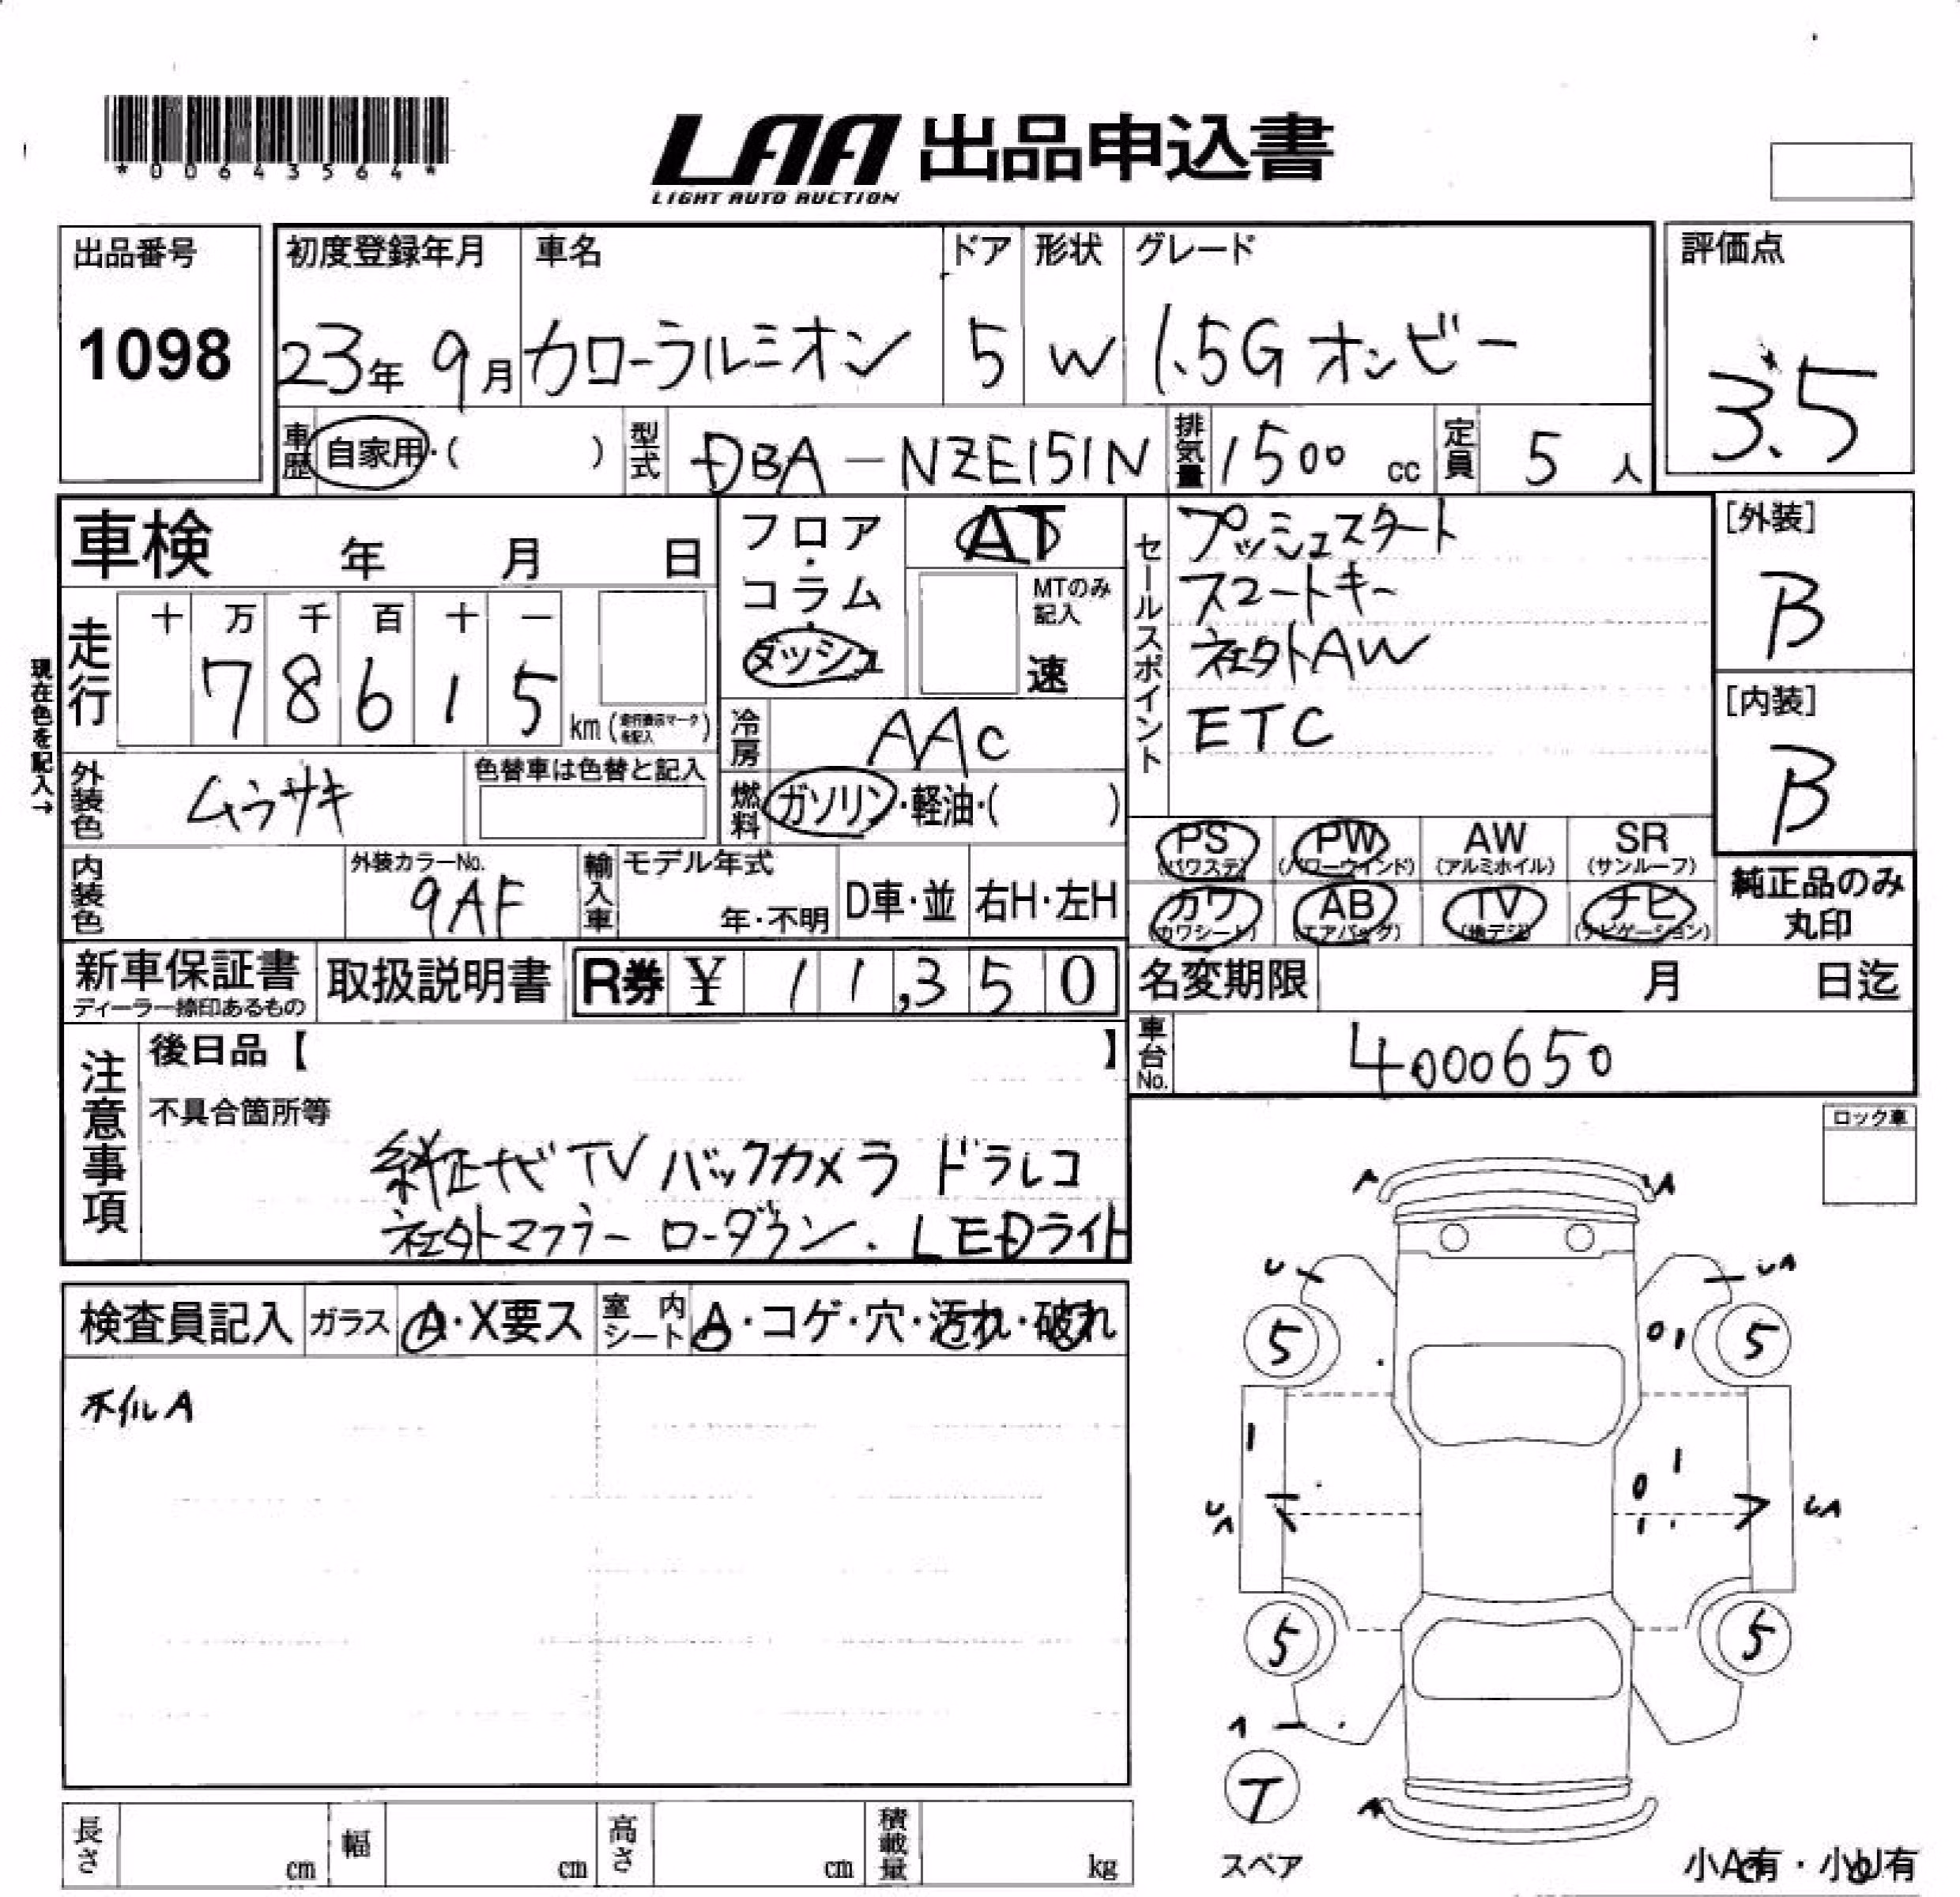 *00643564*
LAA 出品申込書
LIGHT AUTO AUCTION
出品番号
1098
初度登録年月 車名 ドア 形状 グレード
23年 9月 カローラルミオン 5 W 1.5G オンビー
評価点
3.5
車歴 自家用・( ) 型式 DBA-NZE151N 排気量 1500 cc 定員 5 人
車検 年 月 日
フロア・コラム・ダッシュ
AT
MTのみ記入
速
セールスポイント
プッシュスタート
スマートキー
社外AW
ETC
[外装]
B
[内装]
B
現在色を記入→
走行 十 万 千 百 十 一
78615 km
冷房 AAC
外装色 ムラサキ
色替車は色替と記入
燃料 ガソリン・軽油・( )
PS (パワステ) PW (パワーウインド) AW (アルミホイル) SR (サンルーフ)
カワ (カワシート) AB (エアバッグ) TV (地デジ) ナビ (ナビゲーション)
純正品のみ丸印
内装色 外装カラーNo. 9AF
輸入車 モデル年式 年・不明 D車・並 右H・左H
新車保証書
ディーラー捺印あるもの
取扱説明書 R券 ¥ 11,350
名変期限 月 日迄
車台No. 4000650
注意事項
後日品【 】
不具合箇所等
純正ナビTV バックカメラ ドラレコ
社外マフラー ローダウン. LEDライト
ロック車
検査員記入 ガラス A・X要ス 室内シート A・コゲ・穴・汚れ・破れ
ホイルA
A A
U UA
5 5
UA UA
5 5
A
T
A
スペア
小A有・小U有
長さ cm 幅 cm 高さ cm 積載量 kg